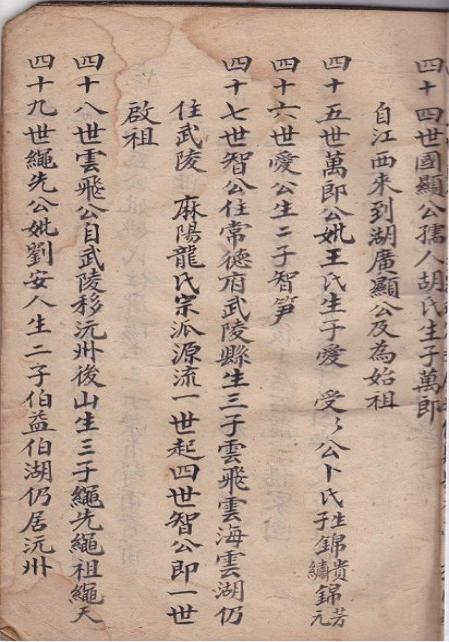 四十四世國顯公孺人胡氏生子萬郎
自江西来到湖廣顯公及為始祖
四十五世萬郎公妣王氏生子愛 受公卜氏生子錦貴錦芳繡錦元
四十六世愛公生二子智筍
四十七世智公住常德府武陵縣生三子雲飛雲海雲湖仍
住武陵 麻陽龍氏宗派源流一世起四世智公即一世
啟祖
四十八世雲飛公自武陵移沅州後山生三子繩先繩祖繩天
四十九世繩先公妣劉安人生二子伯益伯湖仍居沅州